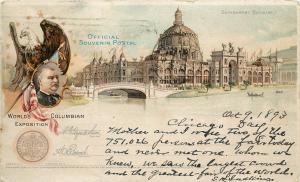 GOVERNMENT BUILDING
OFFICIAL
SOUVENIR POSTAL
WORLD'S COLUMBIAN
EXPOSITION
Oct 9, 1893
Chicago Day
Mother and I were two of the
751,026 persons at the fair today
and never met one whom we
knew, we saw the largest crowd
and the greatest fair of the world.